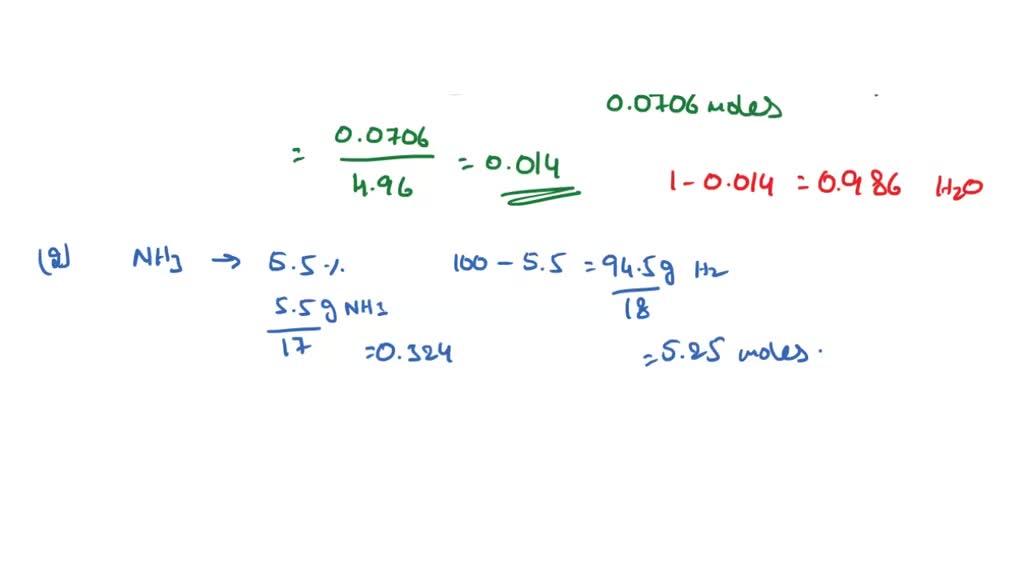 0.0706 moles
= 0.0706 / 4.96 = 0.014
1 - 0.014 = 0.986 H₂O
(2) NH₃ → 5.5% 100 - 5.5 = 94.5g H₂
5.5g NH₃ / 17 = 0.324
/ 18 = 5.25 moles.